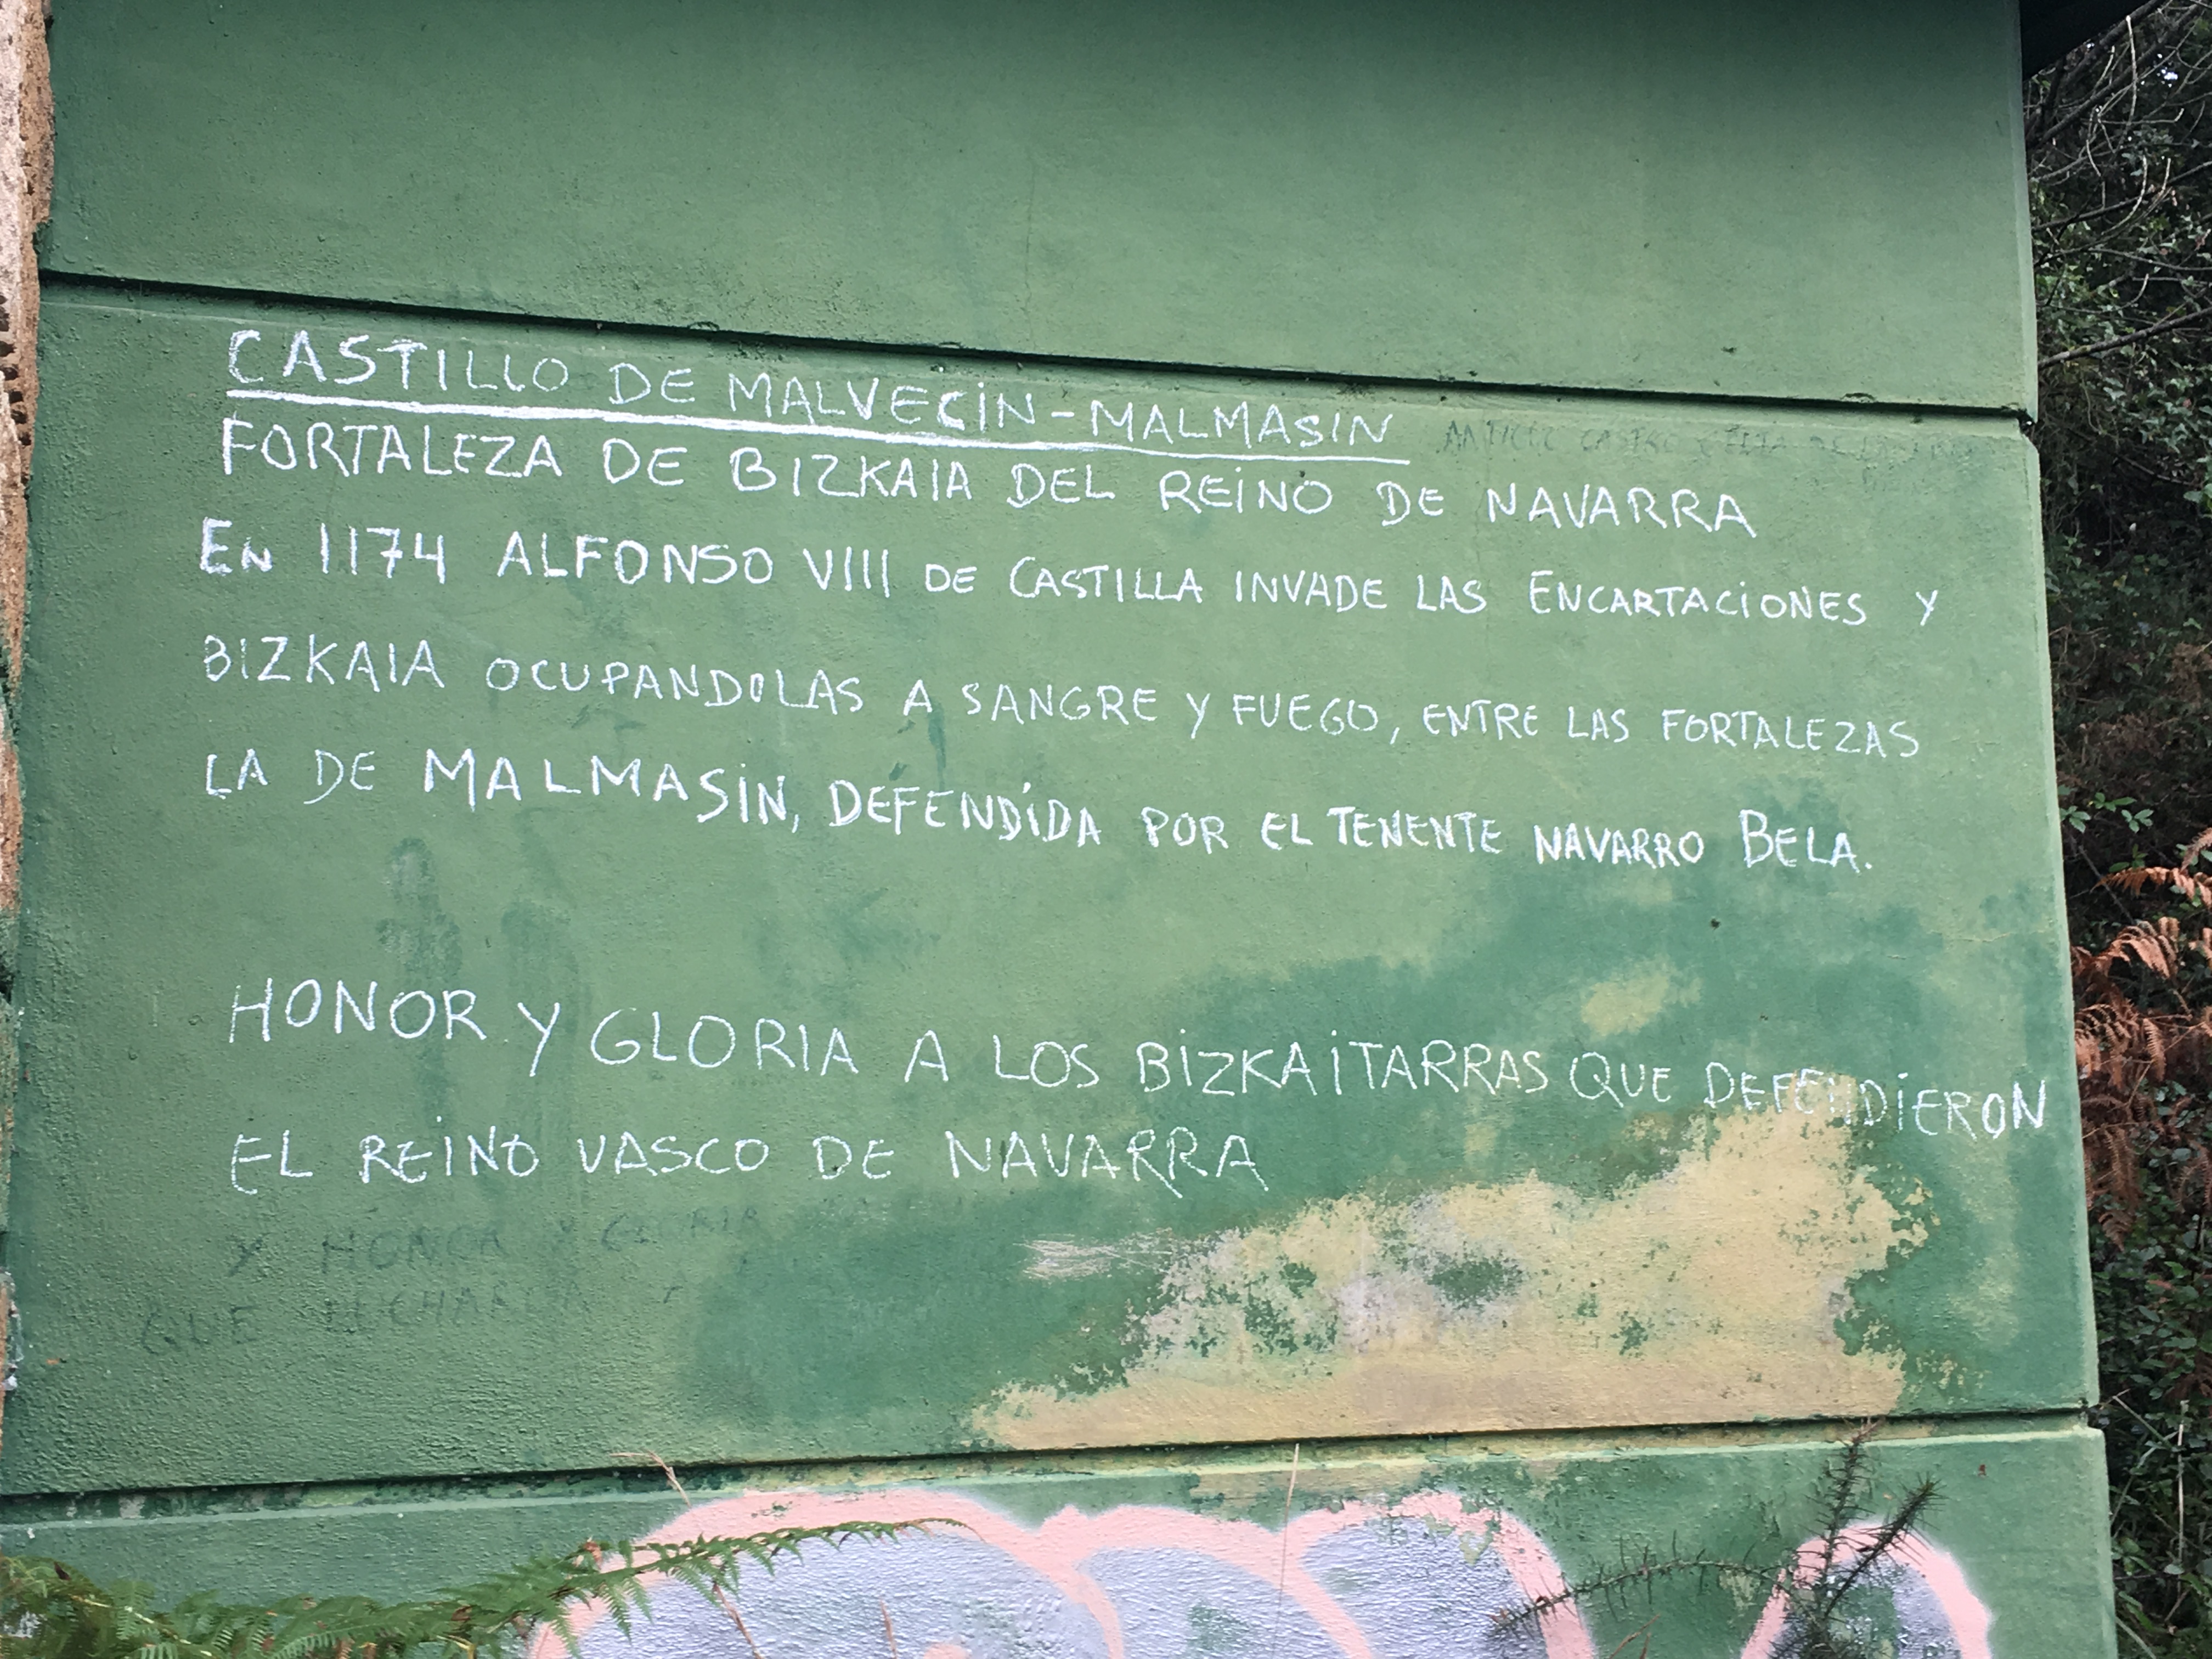 CASTILLO DE MALVECIN-MALMASIN
FORTALEZA DE BIZKAIA DEL REINO DE NAVARRA
EN 1174 ALFONSO VIII DE CASTILLA INVADE LAS ENCARTACIONES Y
BIZKAIA OCUPANDOLAS A SANGRE Y FUEGO, ENTRE LAS FORTALEZAS
LA DE MALMASIN, DEFENDIDA POR EL TENENTE NAVARRO BELA.
HONOR Y GLORIA A LOS BIZKAITARRAS QUE DEFENDIERON
EL REINO VASCO DE NAVARRA
Y HONOR Y GLORIA
QUE